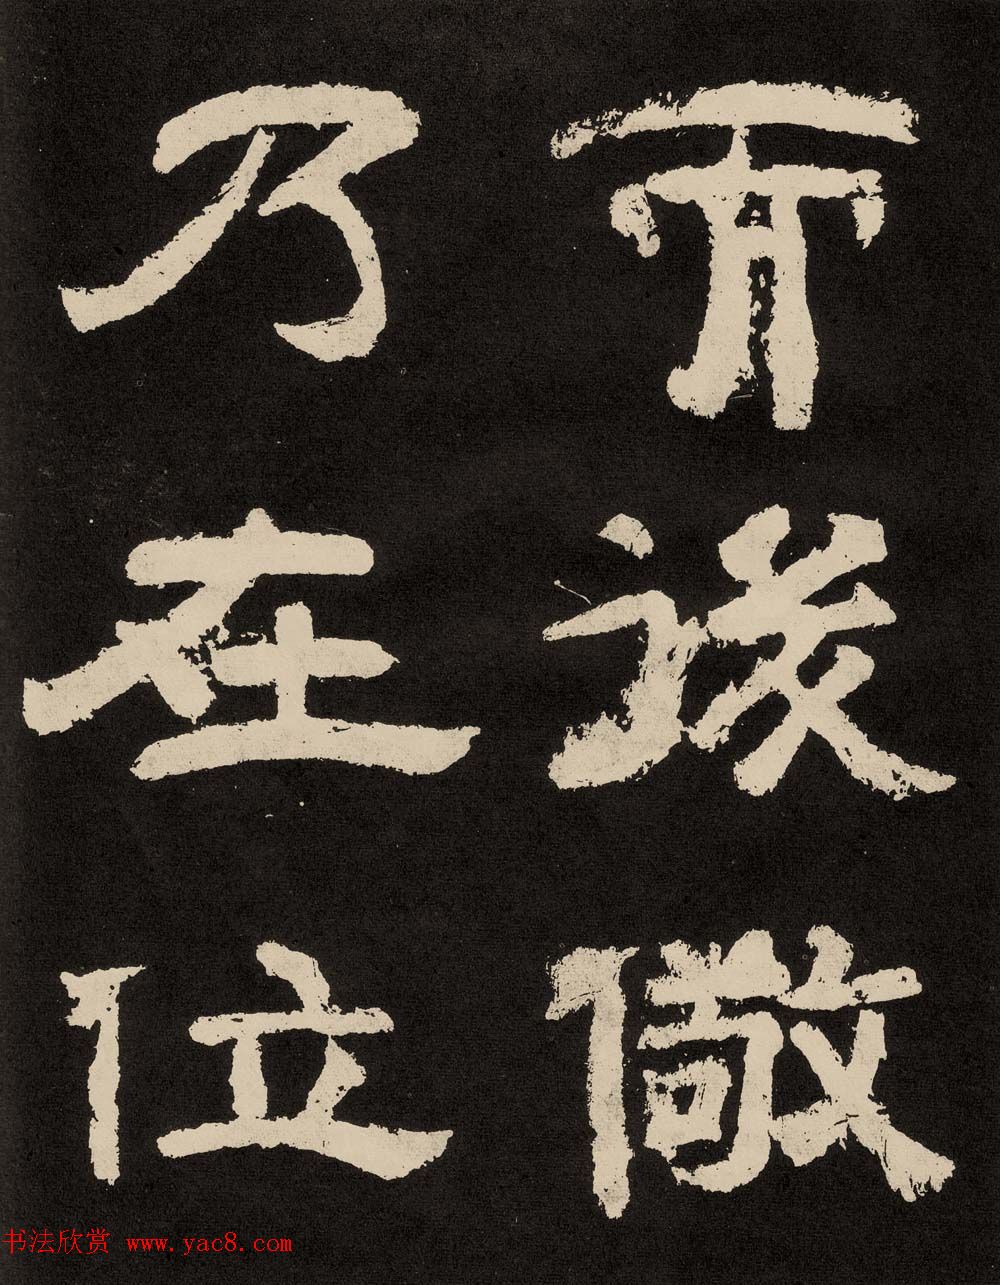 而儆
乃在位
书法欣赏 www.yac8.com